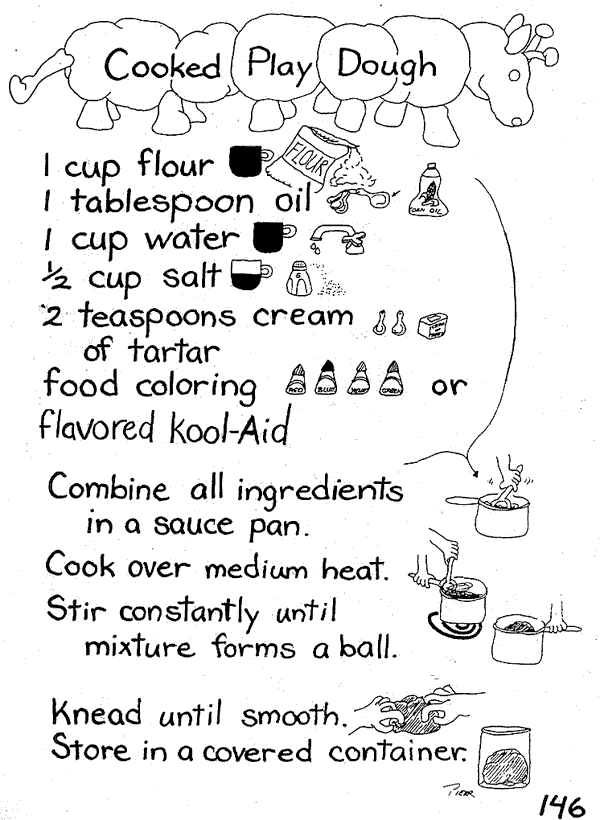 Cooked Play Dough
1 cup flour FLOUR
1 tablespoon oil CORN OIL
1 cup water
½ cup salt
2 teaspoons cream
of tartar
food coloring RED BLUE YELLOW GREEN or
flavored Kool-Aid
Combine all ingredients
in a sauce pan.
Cook over medium heat.
Stir constantly until
mixture forms a ball.
Knead until smooth.
Store in a covered container.
146